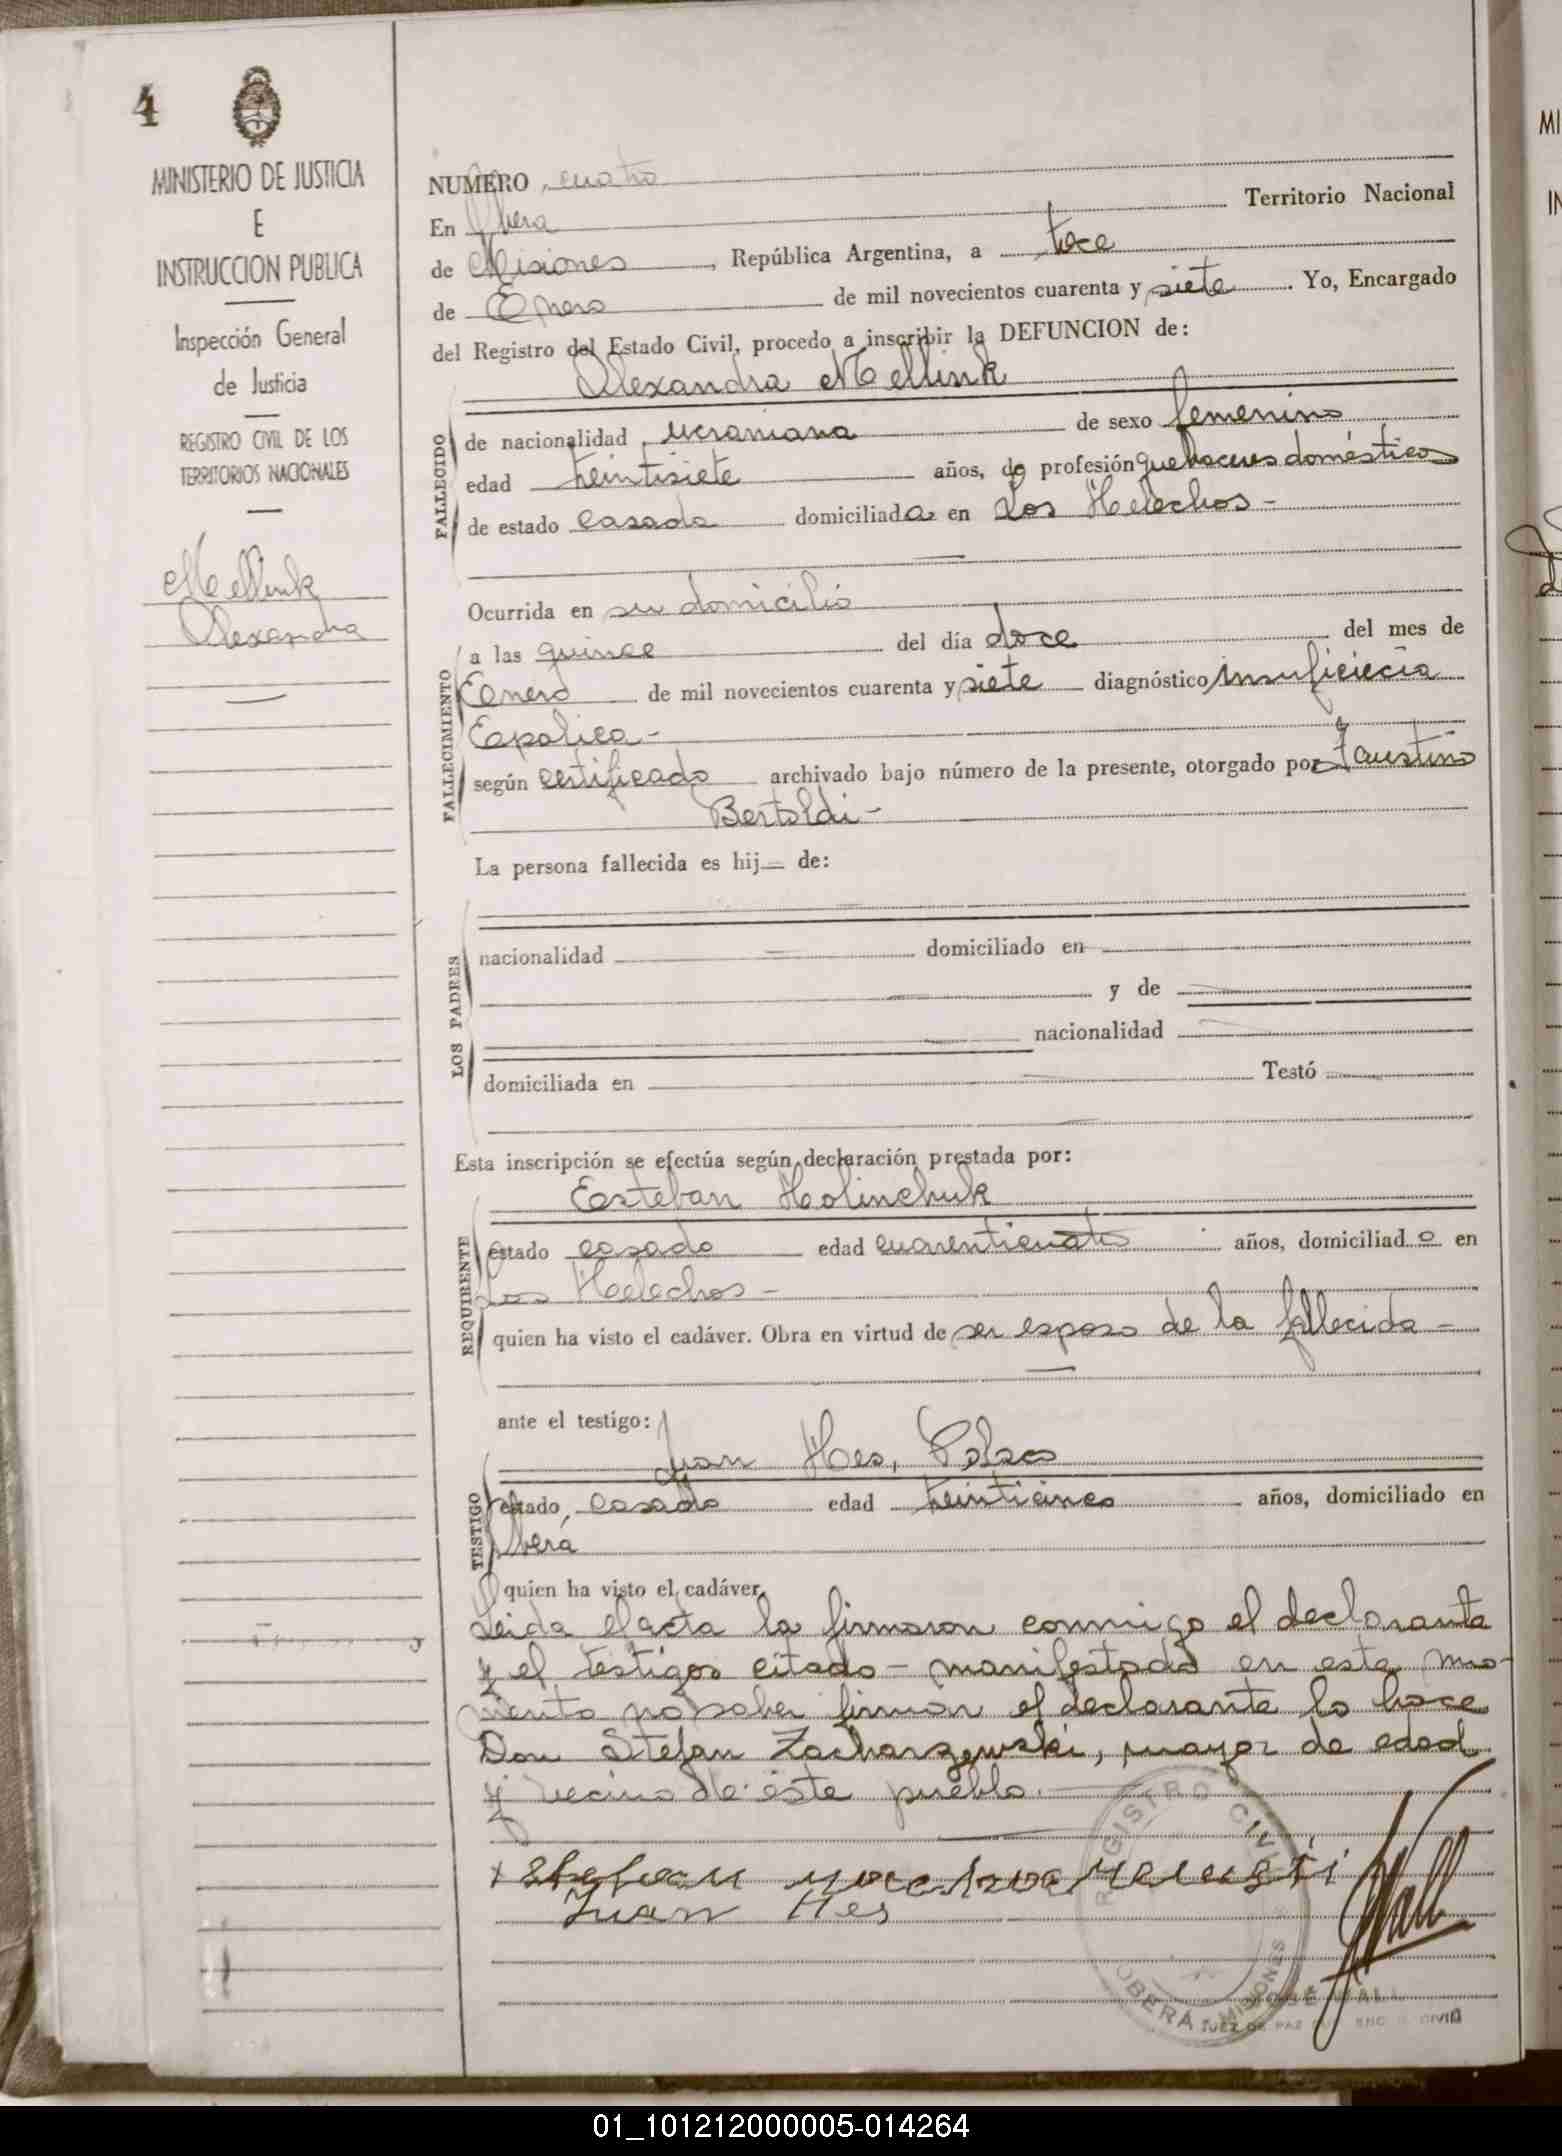 4
MINISTERIO DE JUSTICIA
E
INSTRUCCION PUBLICA
Inspección General
de Justicia
REGISTRO CIVIL DE LOS
TERRITORIOS NACIONALES
Mellink
Alexandra
NUMERO cuatro
En Oberá Territorio Nacional
de Misiones, República Argentina, a trece
de Enero de mil novecientos cuarenta y siete. Yo, Encargado
del Registro del Estado Civil, procedo a inscribir la DEFUNCION de:
Alexandra Mellink
FALLECIDO
de nacionalidad ucraniana de sexo femenino
edad treintisiete años, de profesión quehaceres domésticos
de estado casada domiciliada en Los Helechos-
Ocurrida en su domicilio
FALLECIMIENTO
a las quince del día doce del mes de
Enero de mil novecientos cuarenta y siete diagnóstico insuficiecia
Epatica-
según certificado archivado bajo número de la presente, otorgado por Faustino
Bertoldi-
La persona fallecida es hij— de:
LOS PADRES
nacionalidad domiciliado en
y de
nacionalidad
domiciliada en Testó
Esta inscripción se efectúa según declaración prestada por:
Esteban Holinchuk
REQUIRENTE
estado casado edad cuarenticuatro años, domiciliado en
Los Helechos-
quien ha visto el cadáver. Obra en virtud de ser esposo de la fallecida-
ante el testigo:
Juan Hes, Polaco
TESTIGO
estado, casado edad treinticinco años, domiciliado en
Oberá
quien ha visto el cadáver.
Leida el acta la firmaron conmigo el declarante
y el testigos citado- manifestado en este mo-
mento no saber firmar el declarante lo hace
Don Stefan Zacharzewski, mayor de edad
y vecino de este pueblo.
Juan Hes
REGISTRO CIVIL
OBERÁ MISIONES
JOSÉ WALL
JUEZ DE PAZ ENC. R. CIVIL
01_101212000005-014264